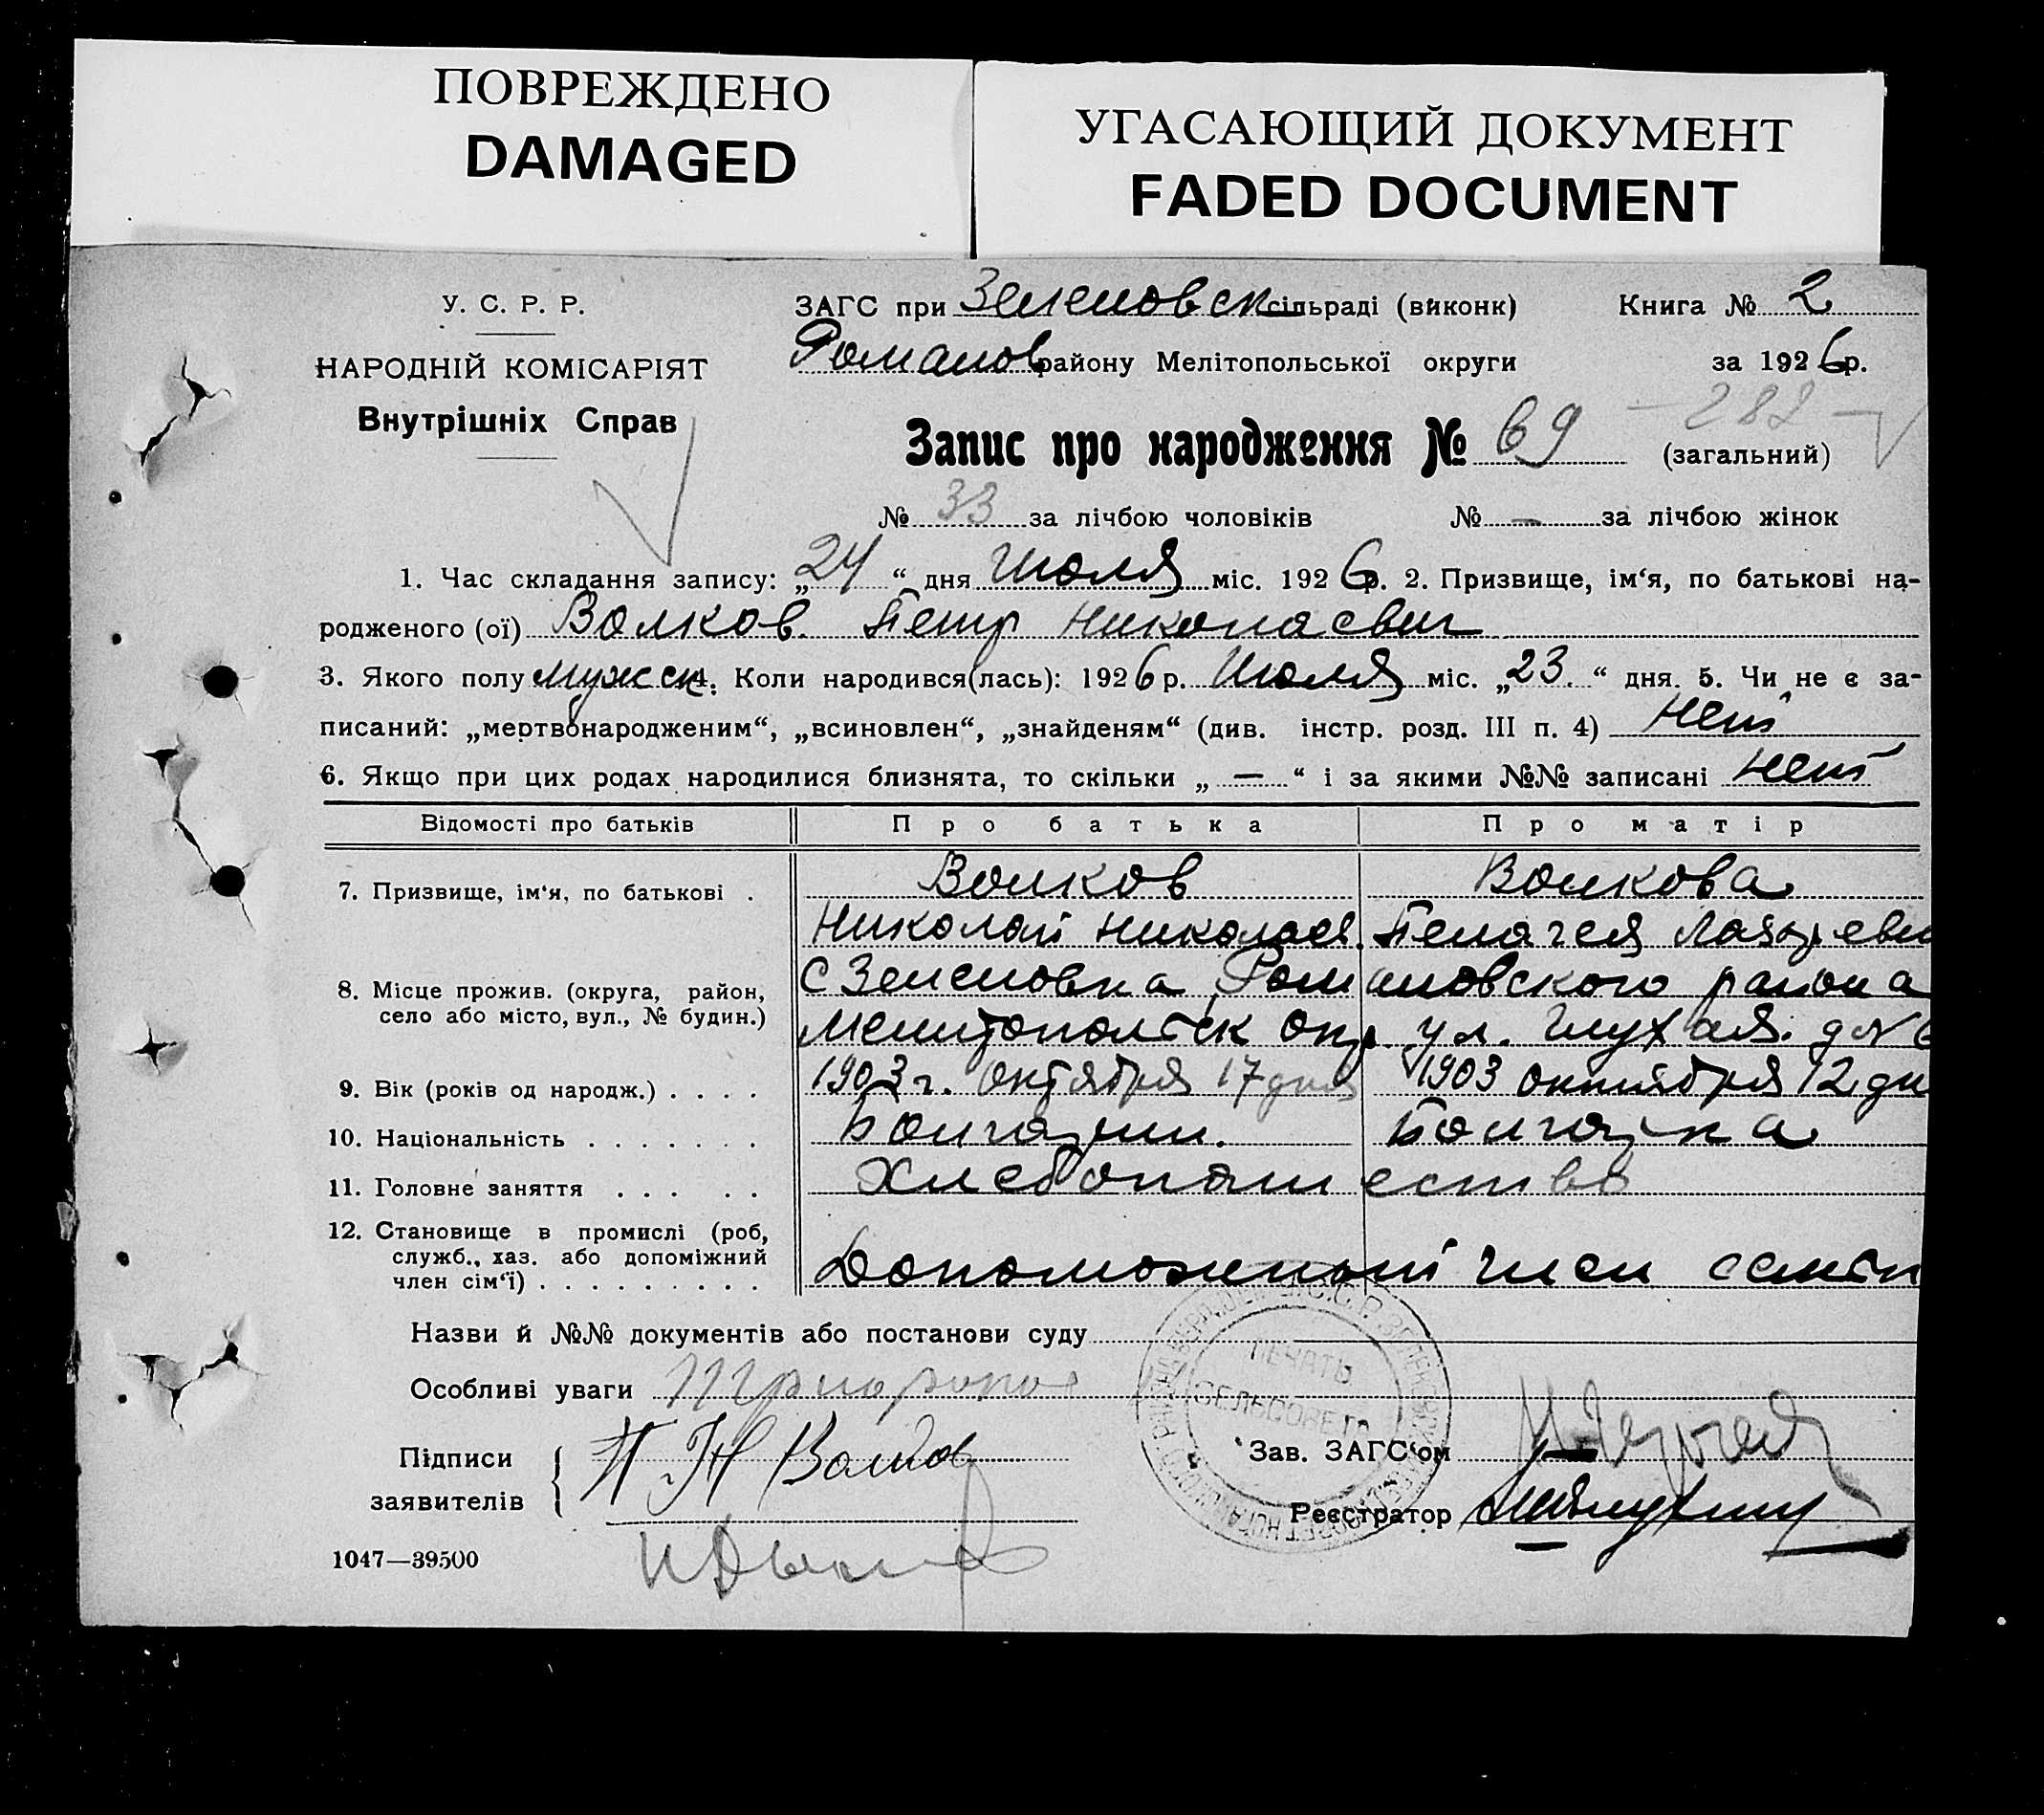 ПОВРЕЖДЕНО
DAMAGED
УГАСАЮЩИЙ ДОКУМЕНТ
FADED DOCUMENT
У. С. Р. Р.
НАРОДНІЙ КОМІСАРІЯТ
Внутрішніх Справ
ЗАГС при Зеленовск сільраді (виконк) Книга № 2
Романов району Мелітопольської округи за 1926 р.
Запис про народження № 69 — 282 —
(загальний)
№ 33 за лічбою чоловіків № — за лічбою жінок
1. Час складання запису: „24“ дня Июля міс. 1926 р. 2. Призвище, ім‘я, по батькові на-
родженого (ої) Волков Петр Николаевич
3. Якого полу мужск 4. Коли народився(лась): 1926 р. Июля міс. „23.“ дня. 5. Чи не є за-
писаний: „мертвонародженим“, „всиновлен“, „знайденям“ (див. інстр. розд. III п. 4) Нет
6. Якщо при цих родах народилися близнята, то скільки „ — “ і за якими №№ записані Нет
Відомості про батьків Про батька Про матір
7. Призвище, ім‘я, по батькові . Волков Волкова
Николай Николаев. Пелагея Лазаревн
8. Місце прожив. (округа, район,
село або місто, вул., № будин.)
С Зеленовка Романовского района
Мелитопольск окр. ул. Глухая. д №6
9. Вік (років од народж.) . . . . 1903 г. Октября 17 дня 1903 октября 12 дн
10. Національність . . . . . . . Болгарин. Болгарка
11. Головне заняття . . . . . Хлебопашество
12. Становище в промислі (роб,
служб., хаз. або допоміжний
член сім‘ї) . . . . . . . . . Допоможный член семьи
Назви й №№ документів або постанови суду
Особливі уваги
ПЕЧАТЬ
СЕЛЬСОВЕТА
Підписи
заявителів
Н Волков
Зав. ЗАГС‘ом
Реєстратор
1047—39500